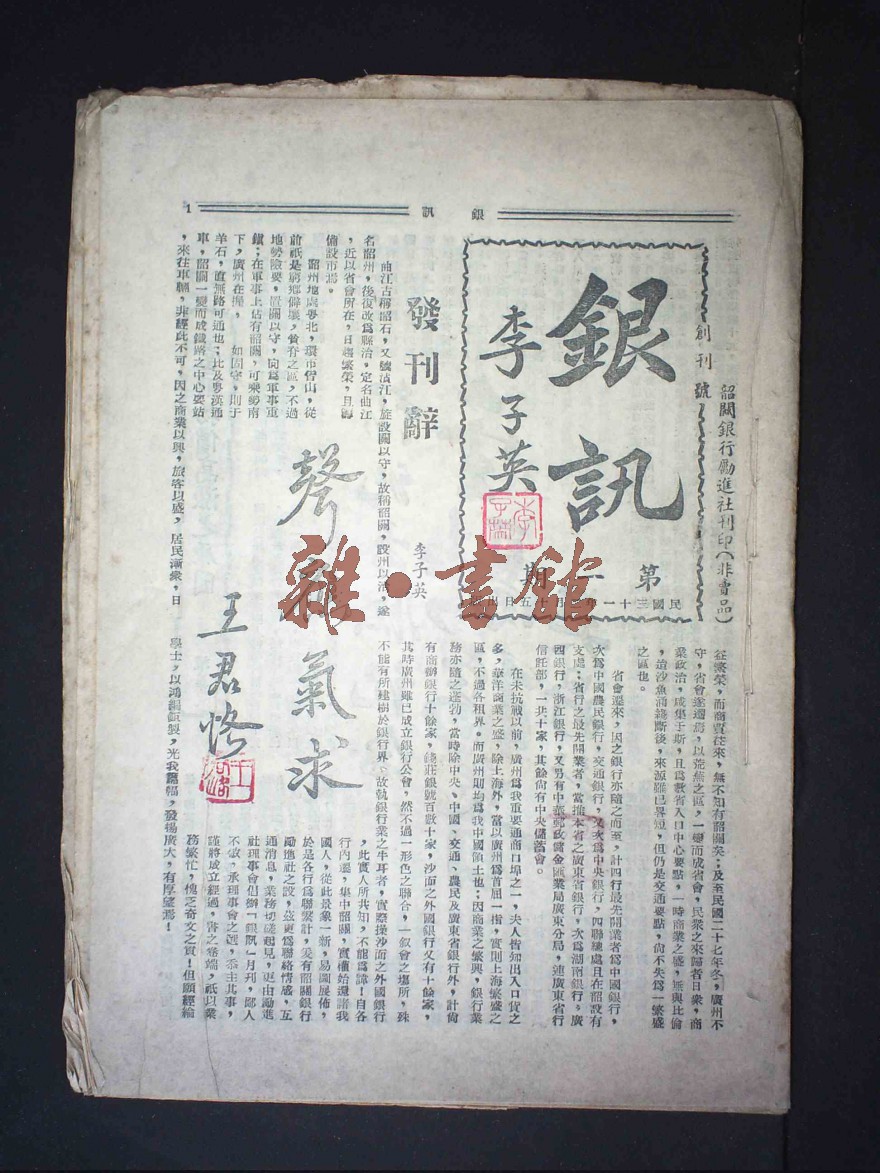 銀訊
1
創刊號
韶關銀行勵進社刊印(非賣品)
銀訊
李子英
第一期
民國三十一年
五日出
發刊辭
李子英
曲江古稱韶石，又號湞江，旋設關以守，故稱韶關，設州以治，遂
名韶州，後復改爲縣治，定名曲江
，近以省會所在，日趨繁榮，且籌
備設市焉。
韶州地處粤北，環市皆山，從
前祇是窮鄉僻壤，貧脊之區，不過
地勢險要，置關以守，向爲軍事重
鎮；在軍事上佔有韶關，可乘勢南
下，廣州在握，如固守，則于
羊石，直無路可通也；比及粤漢通
車，韶關一變而成鐵路之中心要站
，來往車輛，非經此不可，因之商業以興，旅客以盛，居民漸衆，日
征繁榮，而商賈往來，無不知有韶關矣；及至民國二十七年冬，廣州不
守，省會遂遷焉，以荒蕪之區，一變而成省會，民衆之來歸者日衆，商
業政治，咸集于斯，且爲數省入口中心要點，一時商業之盛，無與比倫
，迨沙魚涌綫斷後，來源雖已畧短，但仍是交通要點，尙不失爲一繁盛
之區也。
省會還來，因之銀行亦隨之而至，計四行最先開業者爲中國銀行，
次爲中國農民銀行，交通銀行，又次爲中央銀行，四聯總處且在韶設有
支處；省行之最先開業者，當推本省之廣東省銀行，次爲湖南銀行，廣
西銀行，浙江銀行，又另有中華郵政儲金匯業局廣東分局，連廣東省行
信託部，一共十家，其餘尙有中央儲蓄會。
在未抗戰以前，廣州爲我重要通商口埠之一，夫人皆知出入口貨之
多，華洋商業之盛，除上海外，當以廣州爲首屈一指，實則上海繁盛之
區，不過各租界。而廣州則均爲我中國領土也；因商業之繁興，銀行業
務亦隨之蓬勃，當時除中央、中國、交通、農民及廣東省銀行外，計尙
有商辦銀行十餘家，錢莊銀號百數十家，沙面之外國銀行又有十餘家，
其時廣州雖已成立銀行公會，然不過一形色之聯合，一叙會之塲所，殊
不能有所建樹於銀行界、故執銀行業之牛耳者，實際操沙面之外國銀行
，此實人所共知，不能爲諱！自各
行內遷，集中韶關，實權始還諸我
國人，從此景象一新，易圖展佈，
於是各行爲聯繫計，爰有韶關銀行
勵進社之設，茲更爲聯絡情感，互
通消息，業務切磋起見，更由勵進
社理事會倡辦「銀訊」月刊，鄙人
不敏，承理事會之選，忝主其事，
謹將成立經過，書之卷端，祇以業
務繁忙，愧乏奇文之貢！但願經綸
學士，以鴻編鉅製，光我篇幅，發揚廣大，有厚望焉！
聲
氣求
王君
雜·書館